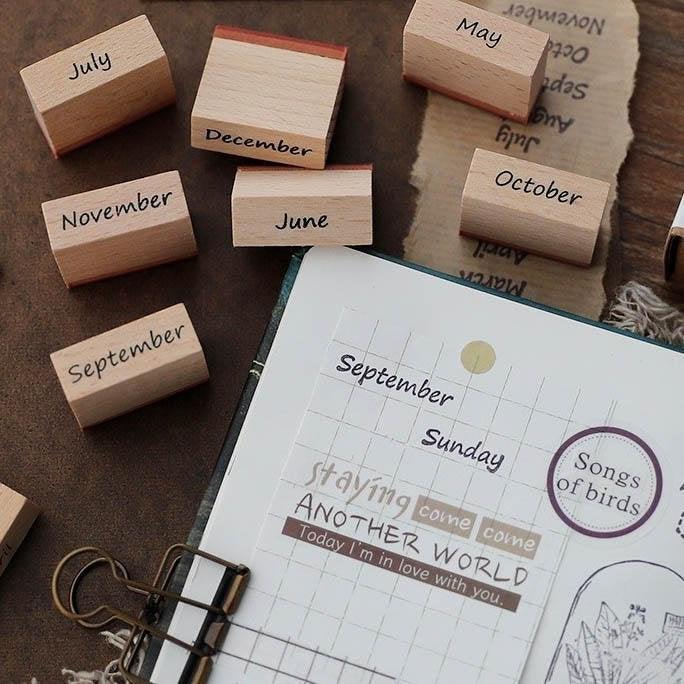 July
December
May
November
June
October
September
November
Octo
Sept
Aug
July
April
March
September
Sunday
staying come come
ANOTHER WORLD
Today I'm in love with you.
Songs
of birds